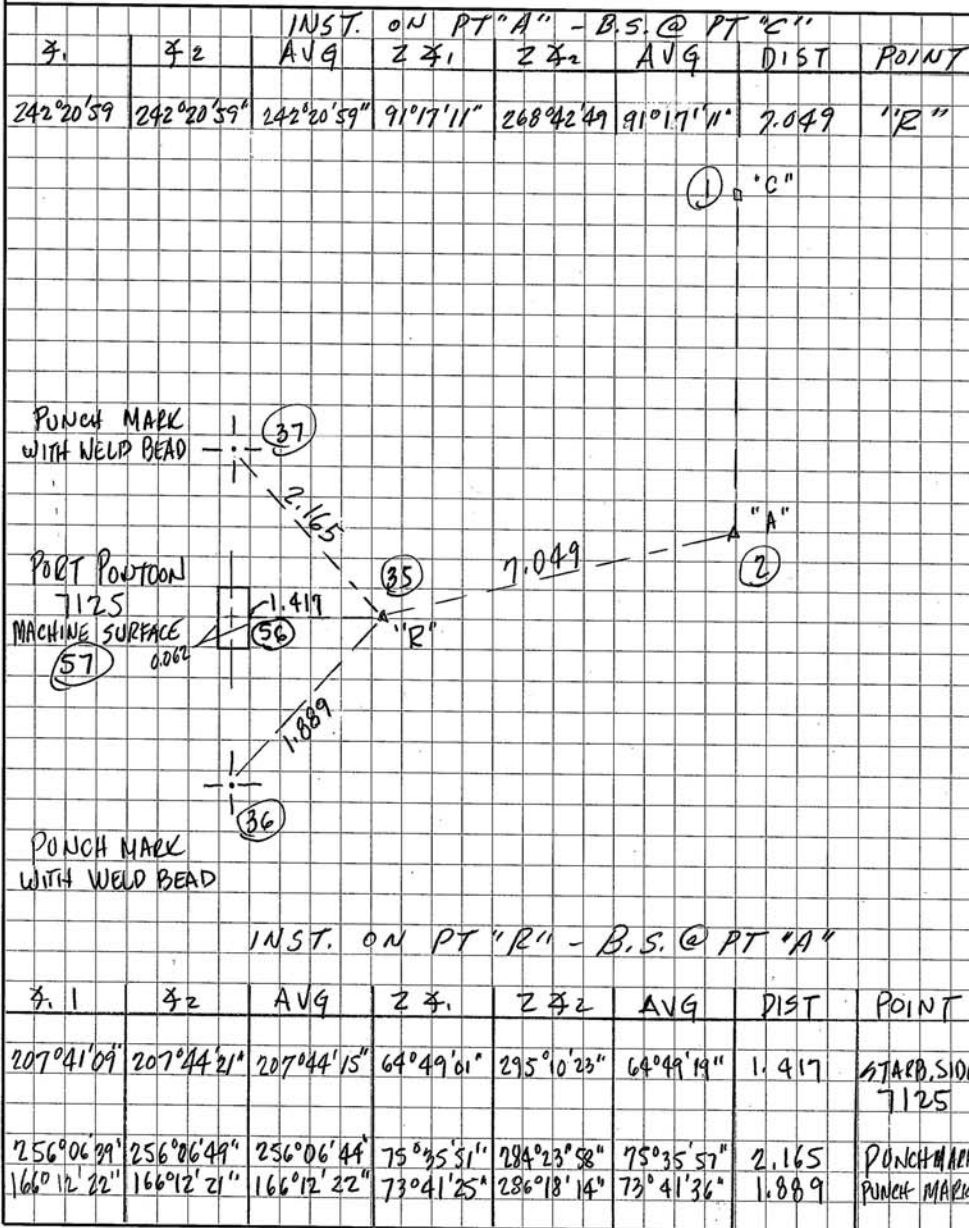 INST. ON PT "A" - B.S. @ PT "C"
∡1 ∡2 AVG Z∡1 Z∡2 AVG DIST POINT
242°20'59 242°20'59" 242°20'59" 91°17'11" 268°42'49 91°17'11" 7.049 "R"
1 "C"
PUNCH MARK 37
WITH WELD BEAD
2.165
"A"
2
7.049
PORT PONTOON 35
7125 1.417
MACHINE SURFACE 56 "R"
57 0.062
1.889
36
PUNCH MARK
WITH WELD BEAD
INST. ON PT "R" - B.S. @ PT "A"
∡.1 ∡2 AVG Z∡1 Z∡2 AVG DIST POINT
207°41'09" 207°44'21" 207°44'15" 64°49'01" 295°10'23" 64°49'19" 1.417 STARB.SIDE
7125
256°06'39" 256°06'49" 256°06'44" 75°35'51" 284°23'58" 75°35'57" 2.165 PUNCH MARK
166°12'22" 166°12'21" 166°12'22" 73°41'25" 286°18'14" 73°41'36" 1.889 PUNCH MARK